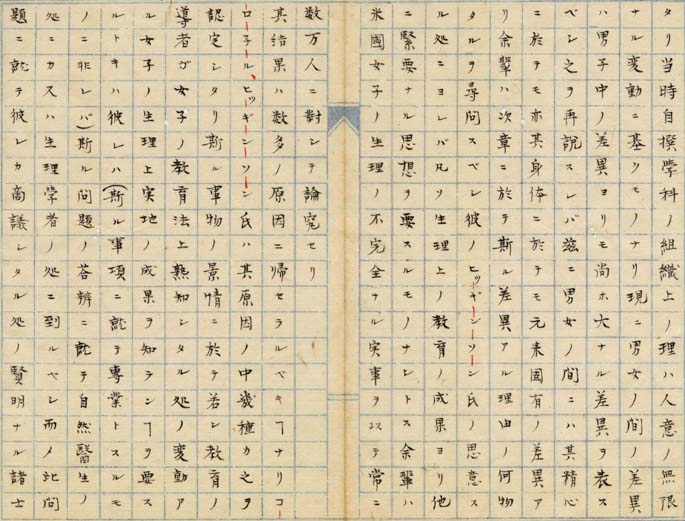 タリ当時自撰学科ノ組織上ノ理ハ人意ノ無限
ナル変動ニ基クモノナリ現ニ男女ノ間ノ差異
ハ男子中ノ差異ヨリモ尚ホ大ナル差異ヲ表ス
ベシ之ヲ再説スレバ茲ニ男女ノ間ニハ其精心
ニ於テモ亦其身体ニ於テモ元来固有ノ差異ア
リ余輩ハ次章ニ於テ斯ル差異アル理由ノ何物
タルヲ尋問スベシ彼ノヒッギーンソーン氏ノ思意ス
ル処ニヨレバ凡ソ生理上ノ教育ノ成果ヨリ他
ニ緊要ナル思想ヲ要スルモノナシトス余輩ハ
米國女子ノ生理ノ不完全ナル実事ヲ以テ常ニ
数万人ニ對シテ論究セリ
其結果ハ数多ノ原因ニ帰セラルベキヿナリコー
ロ子ール、ヒッギーンソーン氏ハ其原因ノ中幾種カ之ヲ
認定シタリ斯ル事物ノ景情ニ於テ若シ教育ノ
導者ガ女子ノ教育法上熟知シタル処ノ変動ア
ル女子ノ生理上実地ノ成果ヲ知ランヿヲ要ス
ルトキハ彼レハ(斯ル事項ニ就テ専業トスルモ
ノニ非レバ)斯ル問題ノ答辨ニ就テ自然醫生ノ
処ニカスハ生理学者ノ処ニ到ルベシ而メ此問
題ニ就テ彼レカ商議シタル処ノ賢明ナル諸士